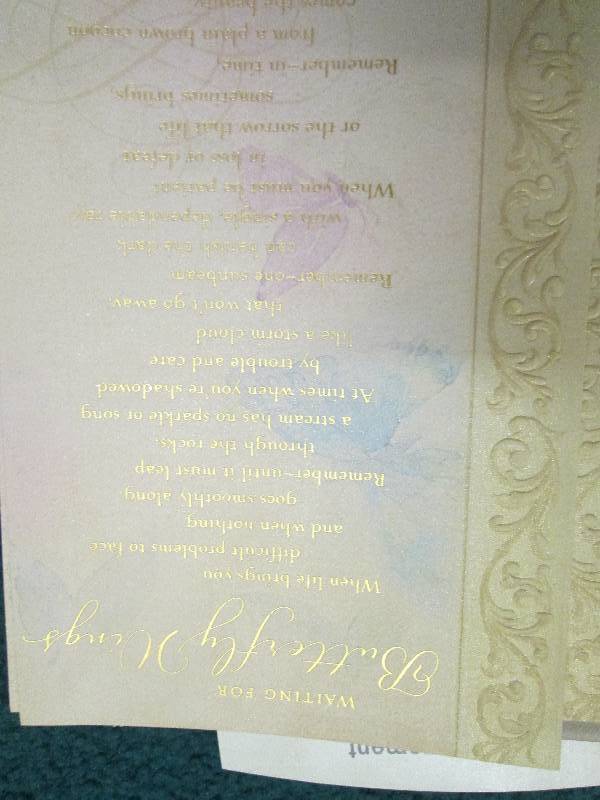 WAITING FOR
Butterfly Wings
When life brings you
difficult problems to face
and when nothing
goes smoothly along
Remember–until it must leap
through the rocks,
a stream has no sparkle or song
At times when you're shadowed
by trouble and care
like a storm cloud
that won't go away,
Remember–one sunbeam
can banish the dark
with a single, dependable ray
When you must be patient
in loss or defeat
or the sorrow that life
sometimes brings,
Remember–in time,
from a plain brown cocoon
comes the beauty
ement